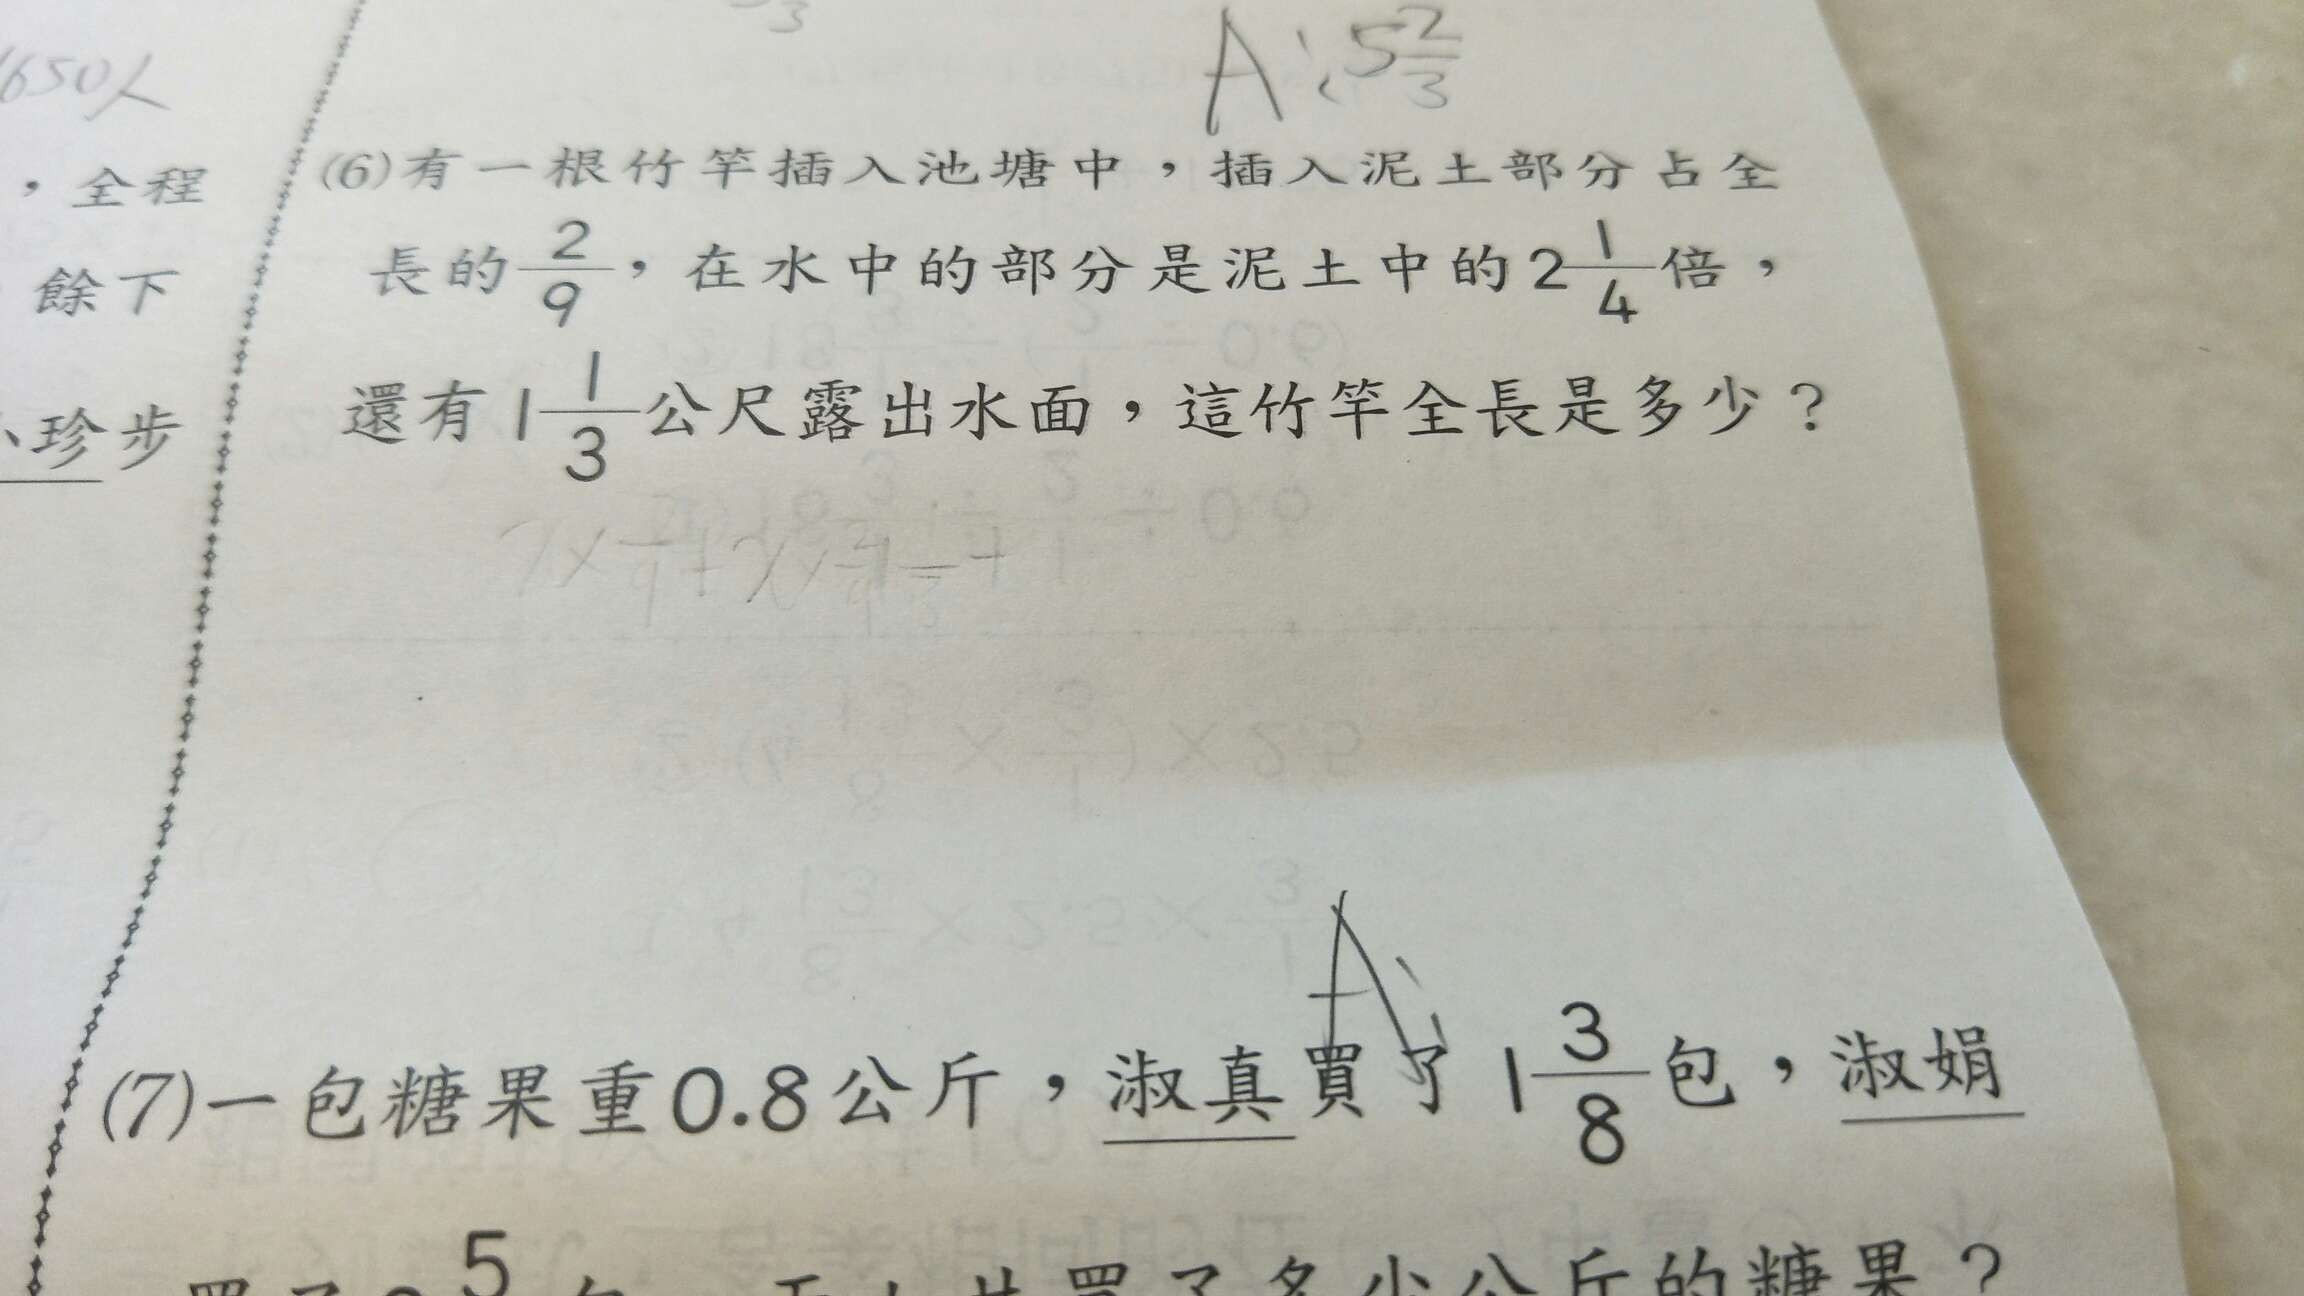 1650人
，全程
餘下
小珍步
3
A：5 2/3
(6)有一根竹竿插入池塘中，插入泥土部分占全
長的2/9，在水中的部分是泥土中的2 1/4倍，
還有1 1/3公尺露出水面，這竹竿全長是多少？
A：
(7)一包糖果重0.8公斤，淑真買了1 3/8包，淑娟